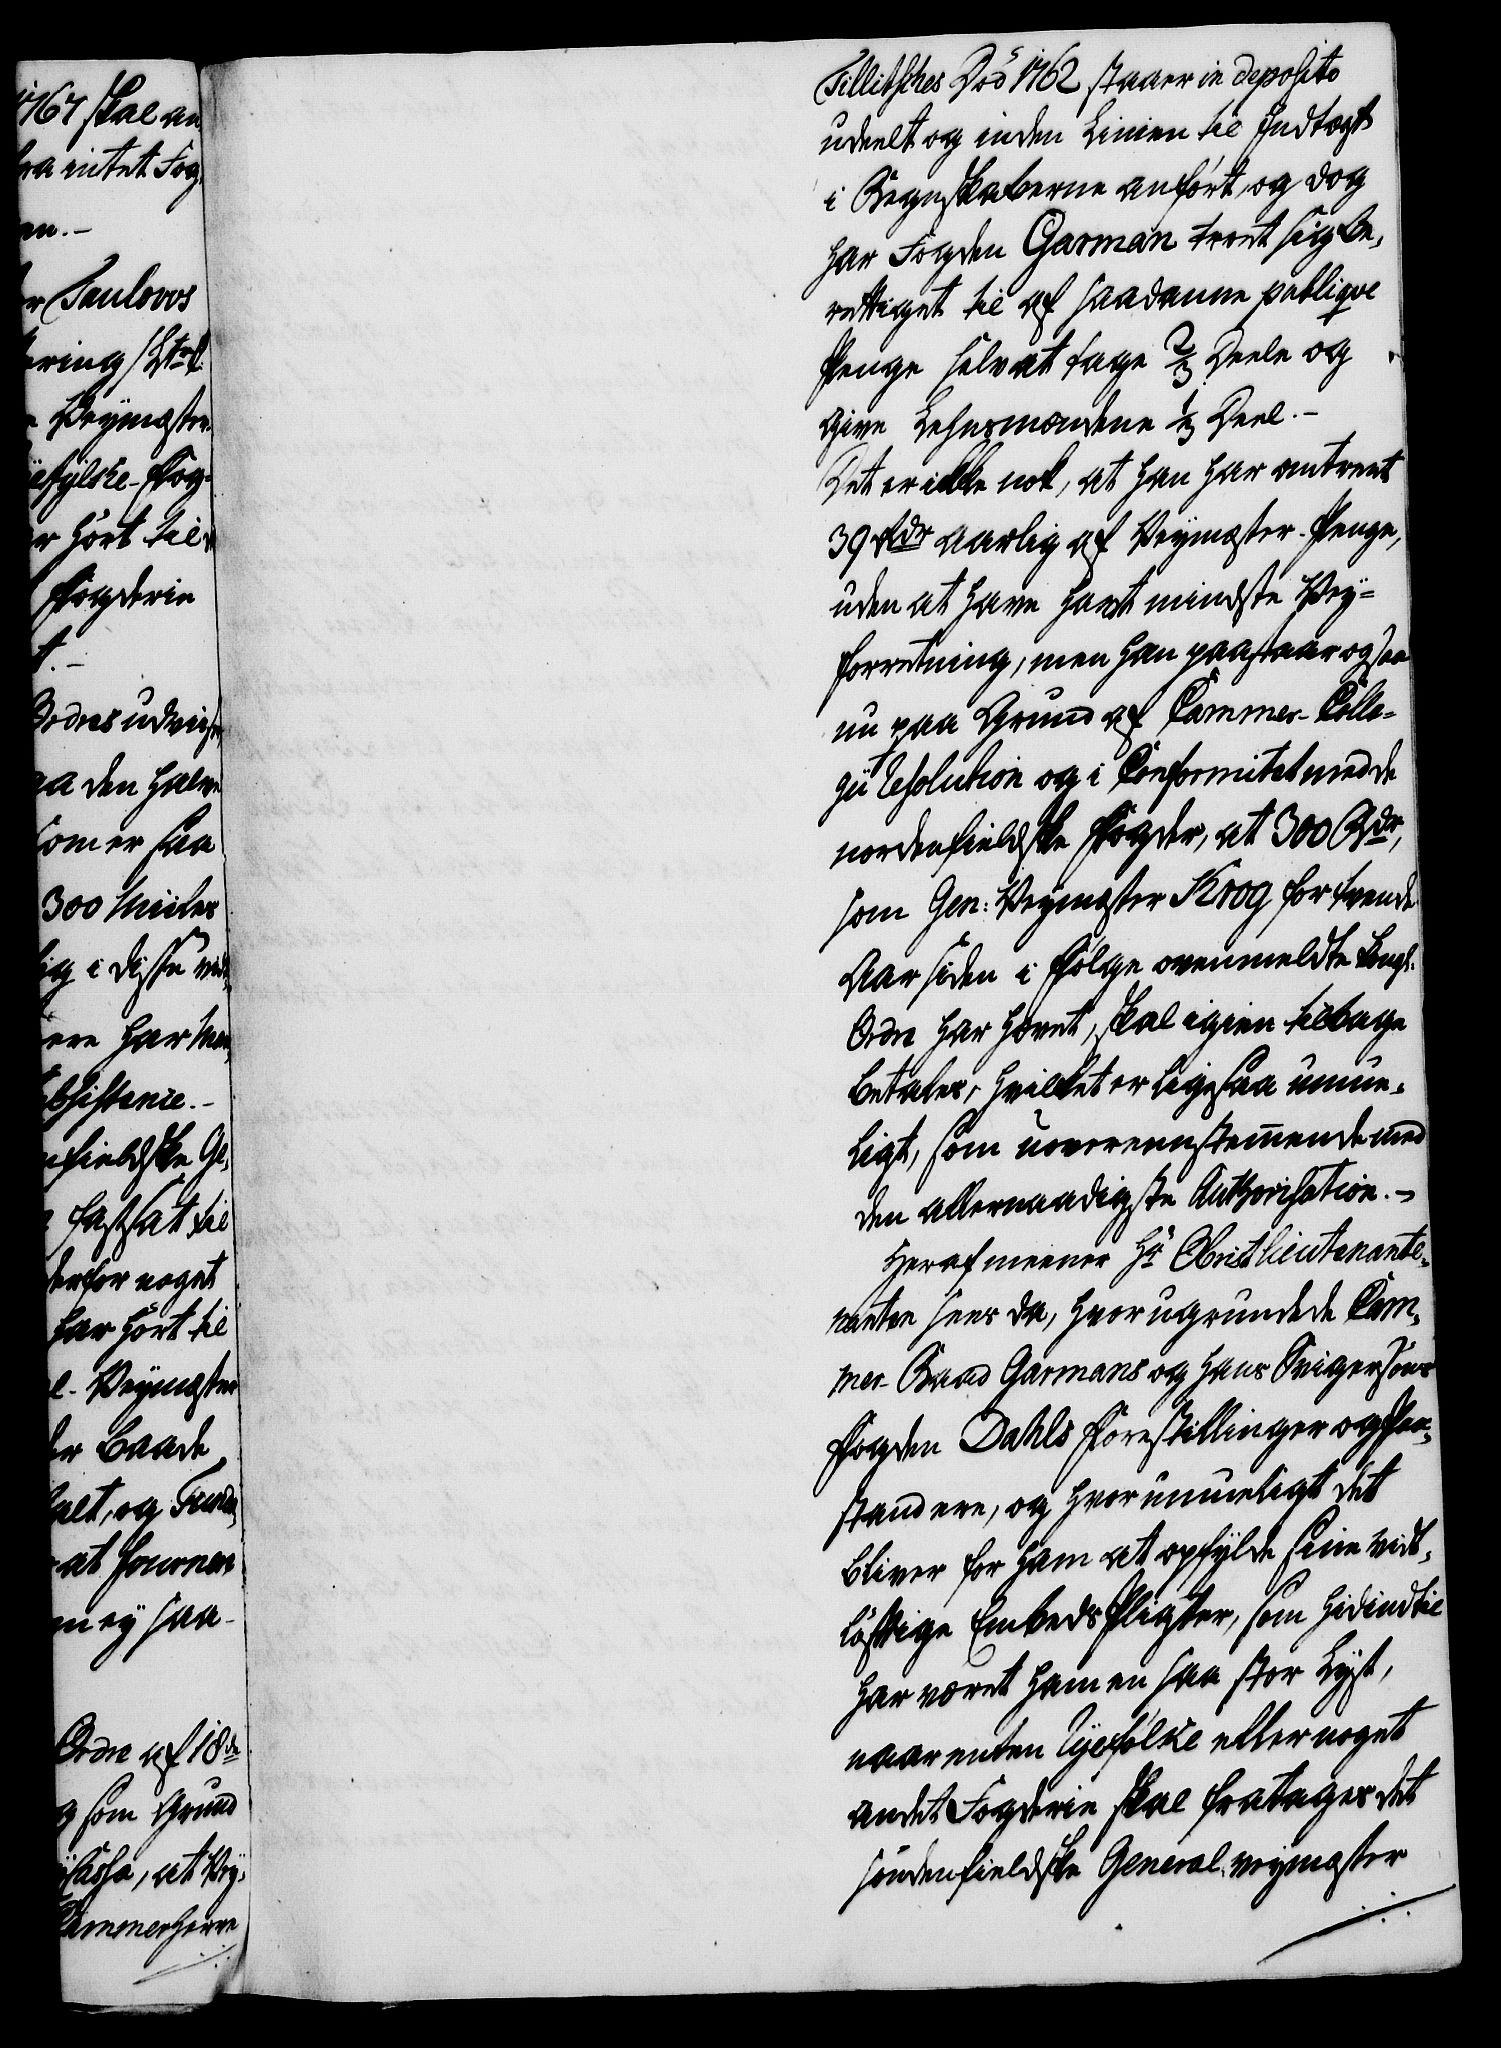 1767 skal an
fra intet Fog
en.-
er Taulovs
Veymester-
efylke-Fog-
er hört til
Fogderie
t.-
Ordres udvise
aa den halve
som er saa
300 Miiles
ig i disse vid
ere har
bsistence.-
nfieldske Ge,
fastsat til
derfor noget
har hört til
l-Veymester
er baade
at fournere
m ey saa-
Ordre af 18de
g som Grund
Cassa, at Vey,
Cammerherre
Tillitsches Död 1762 staaer in deposito
udeelt og inden Linien til Indtægt
i Regnskaberne anfört, og dog
har Fogden Garman troet sig be,
rettiget til af saadanne publiqve
Penge selv at tage 2/3 Deele og
give Lehnsmændene 1/3 Deel.-
Det er ikke nok, at han har omtrent
39 rdr aarlig af Veymester-Penge,
uden at have havt mindste Vey=
forretning, men han paastaar ogsaa
nu paa Grund af Cammer-Colle=
gii Resolution og i Conformitet med de
nordenfieldske Fogder, at 300 Rdr,
som Gen: Veymester Krog for tvende
Aar siden i Fölge ovenmeldte Kongl.
Ordre har hævet, skal igien tilbage
betales, hvilket er ligesaa umue,
ligt, som uoverensstemmende med
den allernaadigste Authorisation.-
Heraf meener Hr Obristlieutenante,
nanten sees da, hvor ugrundede Cam,
mer-Raad Garmans og hans Svigersöns
Fogden Dahls Forestillinger og Paa,
standere, og hvor umueligt det
bliver for ham at opfylde sine vidt,
löftige Embeds Pligter, som hidindtil
har været ham en saa stor Lyst,
naar enten Ryefylke eller noget
andet Fogderie skal fratages det
söndenfieldske General-veymester